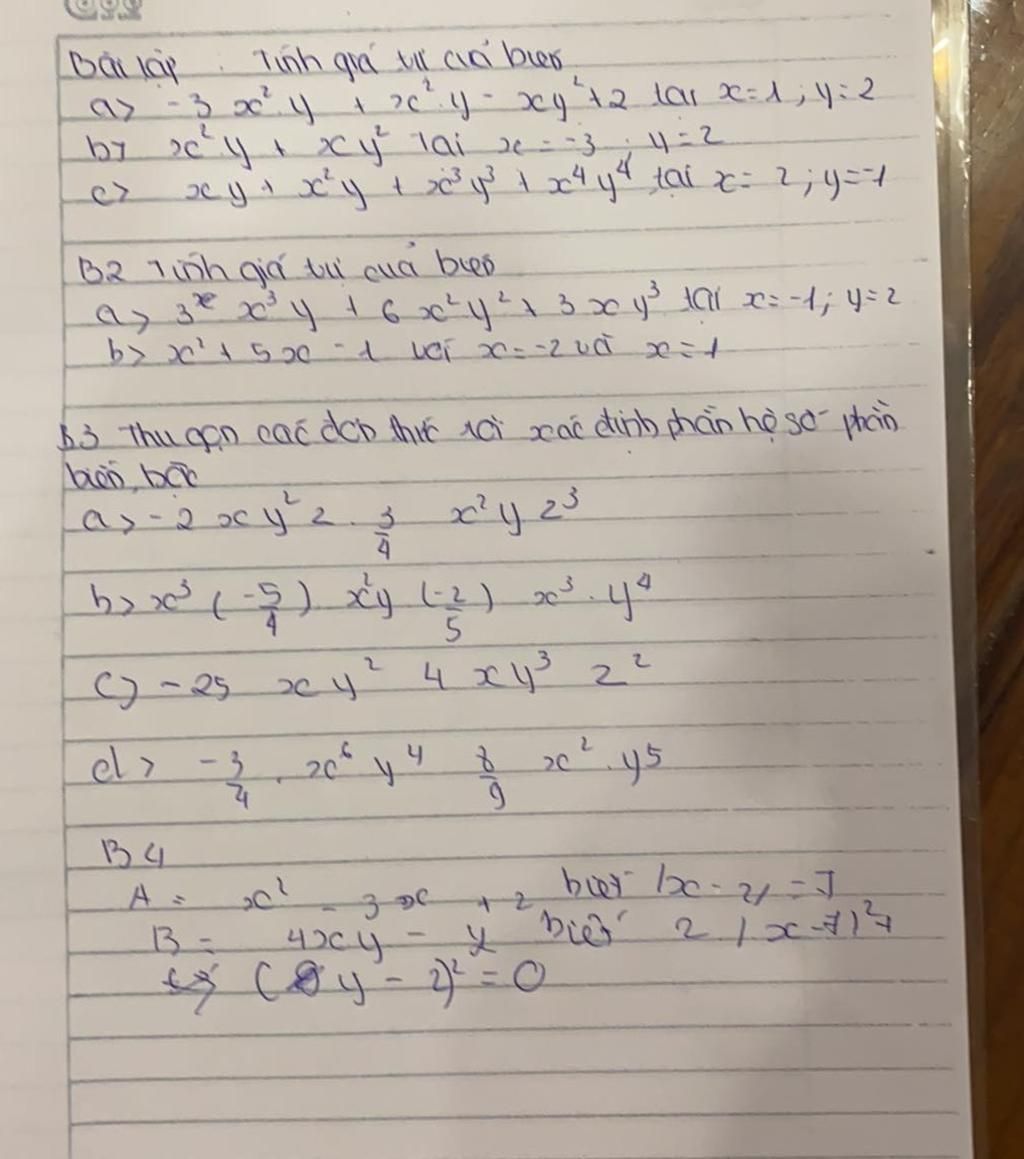 Bài tập. Tính giá trị của biểu
a> -3 x².y + x².y - xy² + 2 tại x=1; y=2
b> x²y + xy² tại x = -3; y=2
c> xy + x²y + x³y³ + x⁴y⁴ tại x= 2; y=-1
B2 Tính giá trị của biểu
a> 3 x³y + 6 x²y² + 3 xy³ tại x=-1; y=2
b> x² + 5x - 1 với x=-2 và x=1
B3 Thu gọn các đơn thức rồi xác định phần hệ số phần
biến, bậc
a> -2 xy²z . 3/4 x²yz³
b> x³ (-5/4) x²y (-2/5) x³.y⁴
c> -25 xy² 4 xy³ z²
d> -3/4 . x⁶y⁴ 8/9 x².y⁵
B4
A = x² - 3x + 2 biết |x - 2| = 1
B = 4xy - y biết 2 (x-1)² +
(y - 2)² = 0